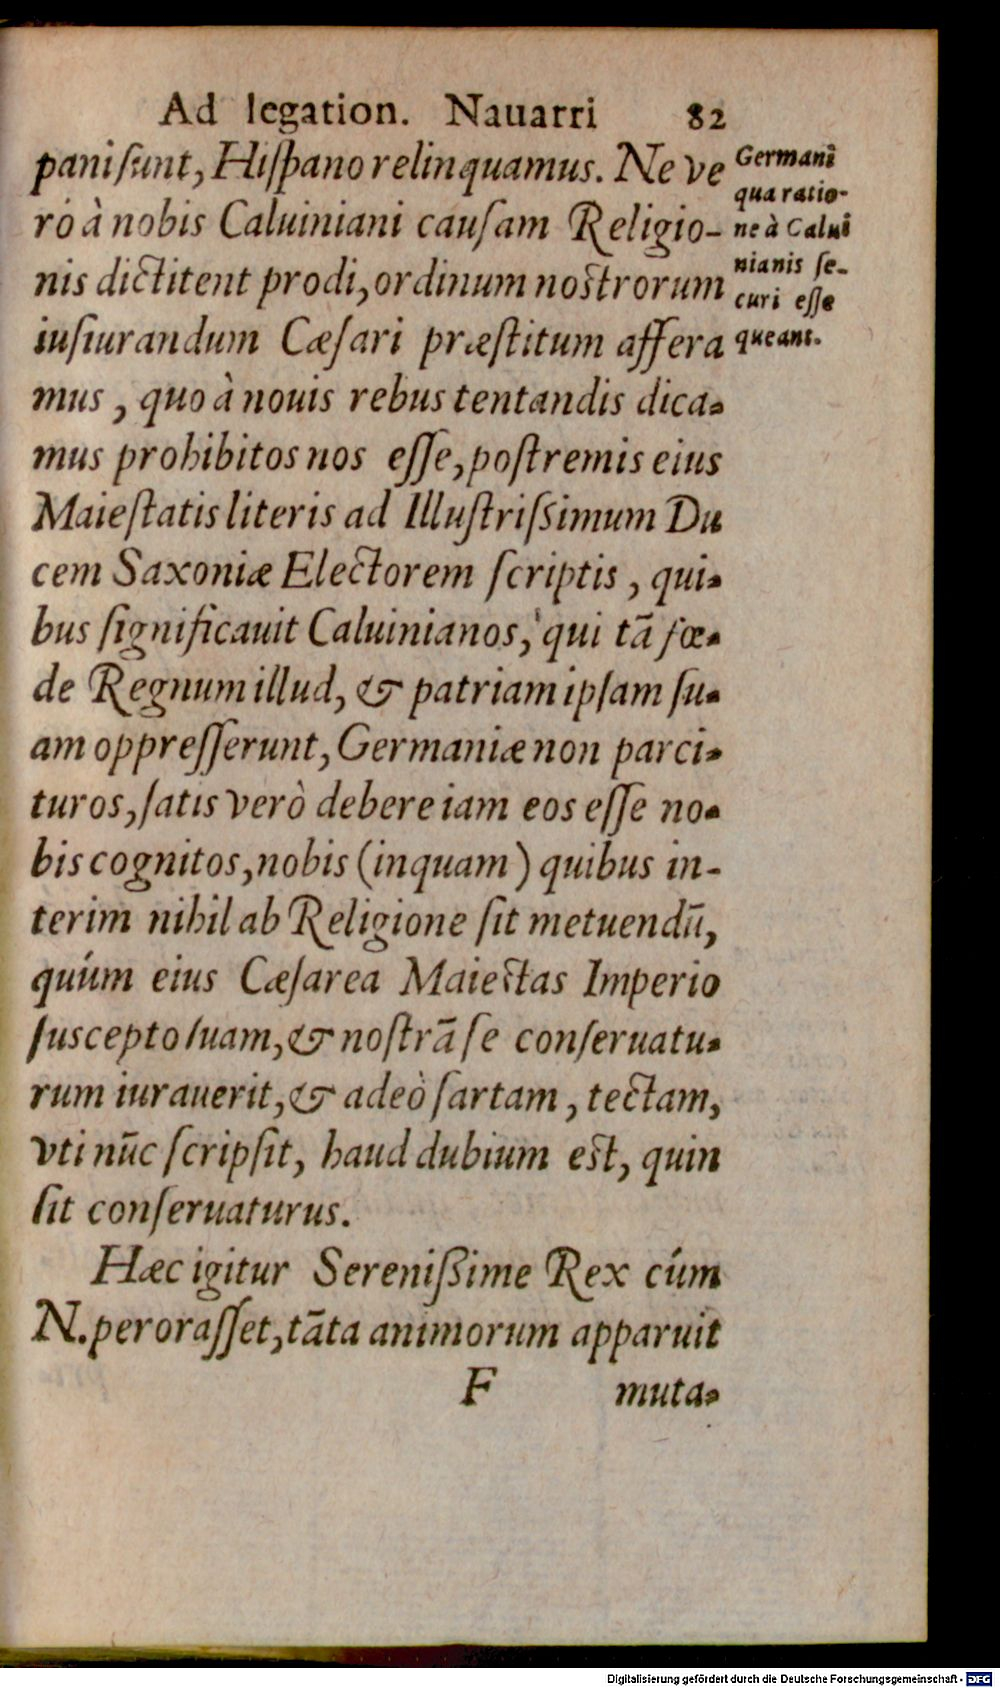 Ad legation. Nauarri 82
pani ſunt, Hiſpano relinquamus. Ne ve
rò à nobis Caluiniani cauſam Religio-
nis dictitent prodi, ordinum noſtrorum
iuſiurandum Cæſari præſtitum affera
mus, quo à nouis rebus tentandis dica-
mus prohibitos nos eſſe, poſtremis eius
Maieſtatis literis ad Illuſtriſſimum Du
cem Saxoniæ Electorem ſcriptis, qui-
bus ſignificauit Caluinianos, qui tā fœ-
de Regnum illud, & patriam ipſam ſu-
am oppreſſerunt, Germaniæ non parci-
turos, ſatis verò debere iam eos eſſe no-
bis cognitos, nobis (inquam) quibus in-
terim nihil ab Religione ſit metuendū,
quúm eius Cæſarea Maiectas Imperio
ſuscepto ſuam, & noſtrā ſe conſeruatu-
rum iurauerit, & adeò ſartam, tectam,
vti nūc ſcripſit, haud dubium est, quin
ſit conſeruaturus.
Hæc igitur Sereniſſime Rex cúm
N. peroraſſet, tāta animorum apparuit
F muta-
Germani
qua ratio-
ne à Calui
nianis ſe-
curi eſſe
queant.
Digitalisierung gefördert durch die Deutsche Forschungsgemeinschaft - DFG